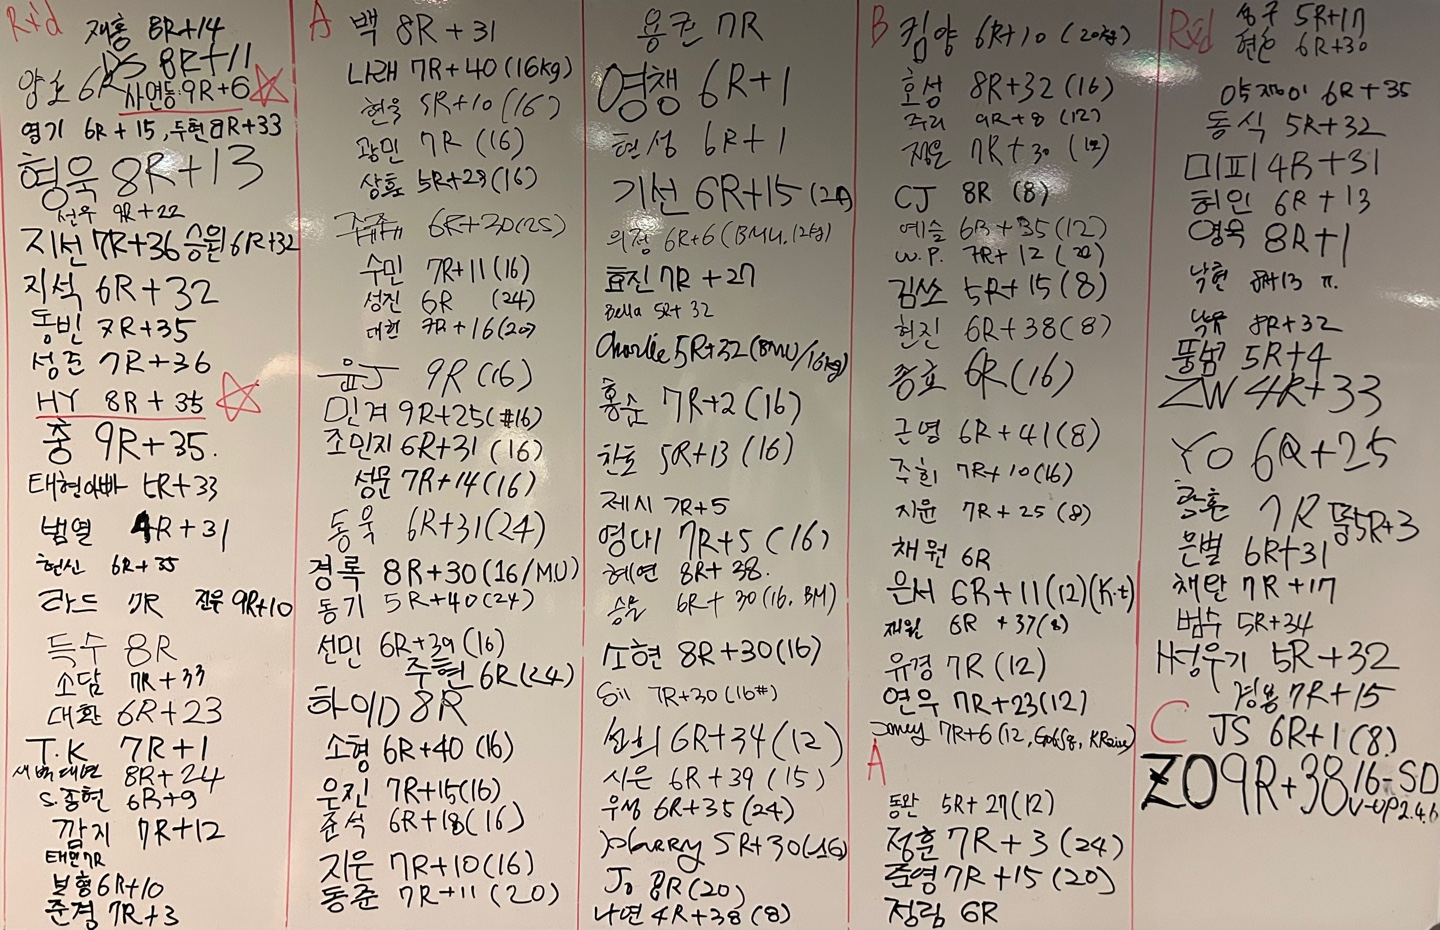 Rxd
재홍 8R+14
DS 8R+11
양호 6R
사연동 9R+6
영기 6R+15, 두현 8R+33
형욱 8R+13
선우 9R+22
지선 7R+36 승원 6R+32
지석 6R+32
동빈 7R+35
성준 7R+36
HY 8R+35
중 9R+35.
태현아빠 5R+33
범열 4R+31
헌신 6R+35
라드 7R 진우 9R+10
득수 8R
소담 7R+33
대환 6R+23
T.K 7R+1
새벽대면 8R+24
S.종현 6R+9
깜지 7R+12
태민 7R
보형 6R+10
준경 7R+3
A
백 8R+31
나래 7R+40 (16kg)
현욱 5R+10 (16)
광민 7R (16)
상효 5R+23(16)
쥬쥬 6R+30(25)
수민 7R+11(16)
성진 6R (24)
대현 7R+16(20)
윤J 9R (16)
민겨 9R+25(#16)
조민지 6R+31 (16)
성문 7R+14(16)
동욱 6R+31(24)
경록 8R+30(16/MU)
동기 5R+40(24)
선민 6R+39 (16)
주현 6R(24)
하이D 8R
소형 6R+40 (16)
우진 7R+15(16)
준석 6R+18(16)
지은 7R+10(16)
동준 7R+11 (20)
용권 7R
영챙 6R+1
현성 6R+1
기선 6R+15 (24)
의정 6R+6 (BMU, 12kg)
효진 7R+27
Bella 5R+32
Charlie 5R+32 (BMU/16kg)
홍순 7R+2 (16)
찬호 5R+13 (16)
제시 7R+5
영대 7R+5 (16)
혜연 8R+38.
승윤 6R+30(16. BM)
소현 8R+30(16)
Sil 7R+30 (16#)
선희 6R+34 (12)
시은 6R+39 (15)
우성 6R+35(24)
Joharry 5R+30(16)
Jo 8R(20)
나연 4R+38 (8)
B
킴양 6R+10 (20kg)
호성 8R+32 (16)
주리 9R+8 (12)
정윤 7R+30 (12)
CJ 8R (8)
예슬 6R+35 (12)
W.P. 7R+12 (20)
김쏘 5R+15 (8)
현진 6R+38(8)
종효 6R(16)
근영 6R+41(8)
주희 7R+10(16)
지윤 7R+25 (8)
채원 6R
은서 6R+11(12)(K.t)
재원 6R+37(8)
유경 7R (12)
연우 7R+23(12)
A
동완 5R+27(12)
정훈 7R+3 (24)
준영 7R+15 (20)
정림 6R
Rxd
승구 5R+17
현순 6R+30
야쟁이 6R+35
동식 5R+32
미피 4R+31
허인 6R+13
영욱 8R+1
낙현 8R+13
낙규 8R+32
뚱남 5R+4
ZW 4R+33
YO 6R+25
창환 7R 뚱 5R+3
은별 6R+31
채란 7R+17
범수 5R+34
H성우기 5R+32
경용 7R+15
C
JS 6R+1 (8)
ZO 9R+38 16-SD
V-up 2.4.6